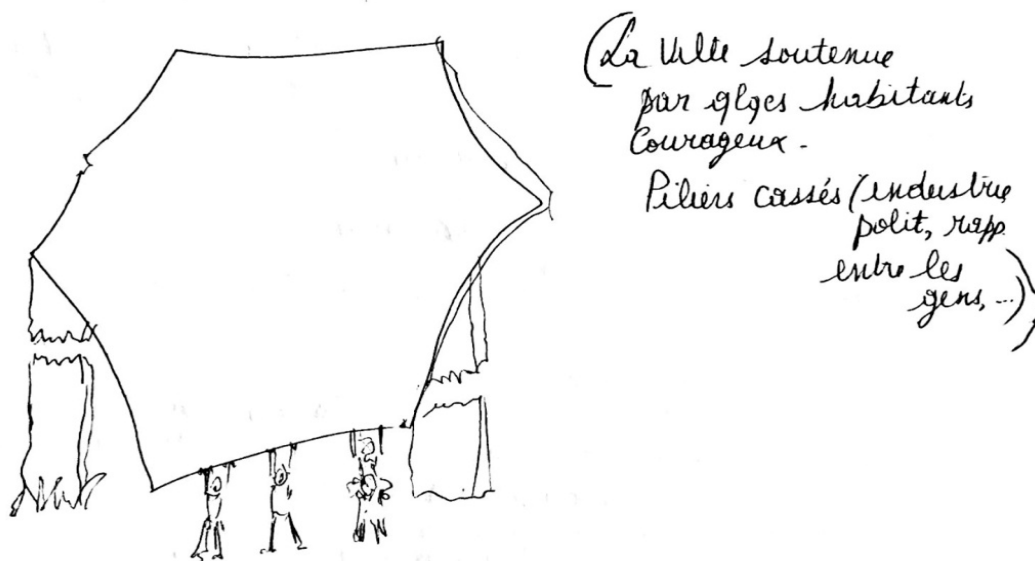 (La Ville soutenue
par qlqes habitants
Courageux.
Piliers cassés (industrie
polit, rapp.
entre les
gens, ...))